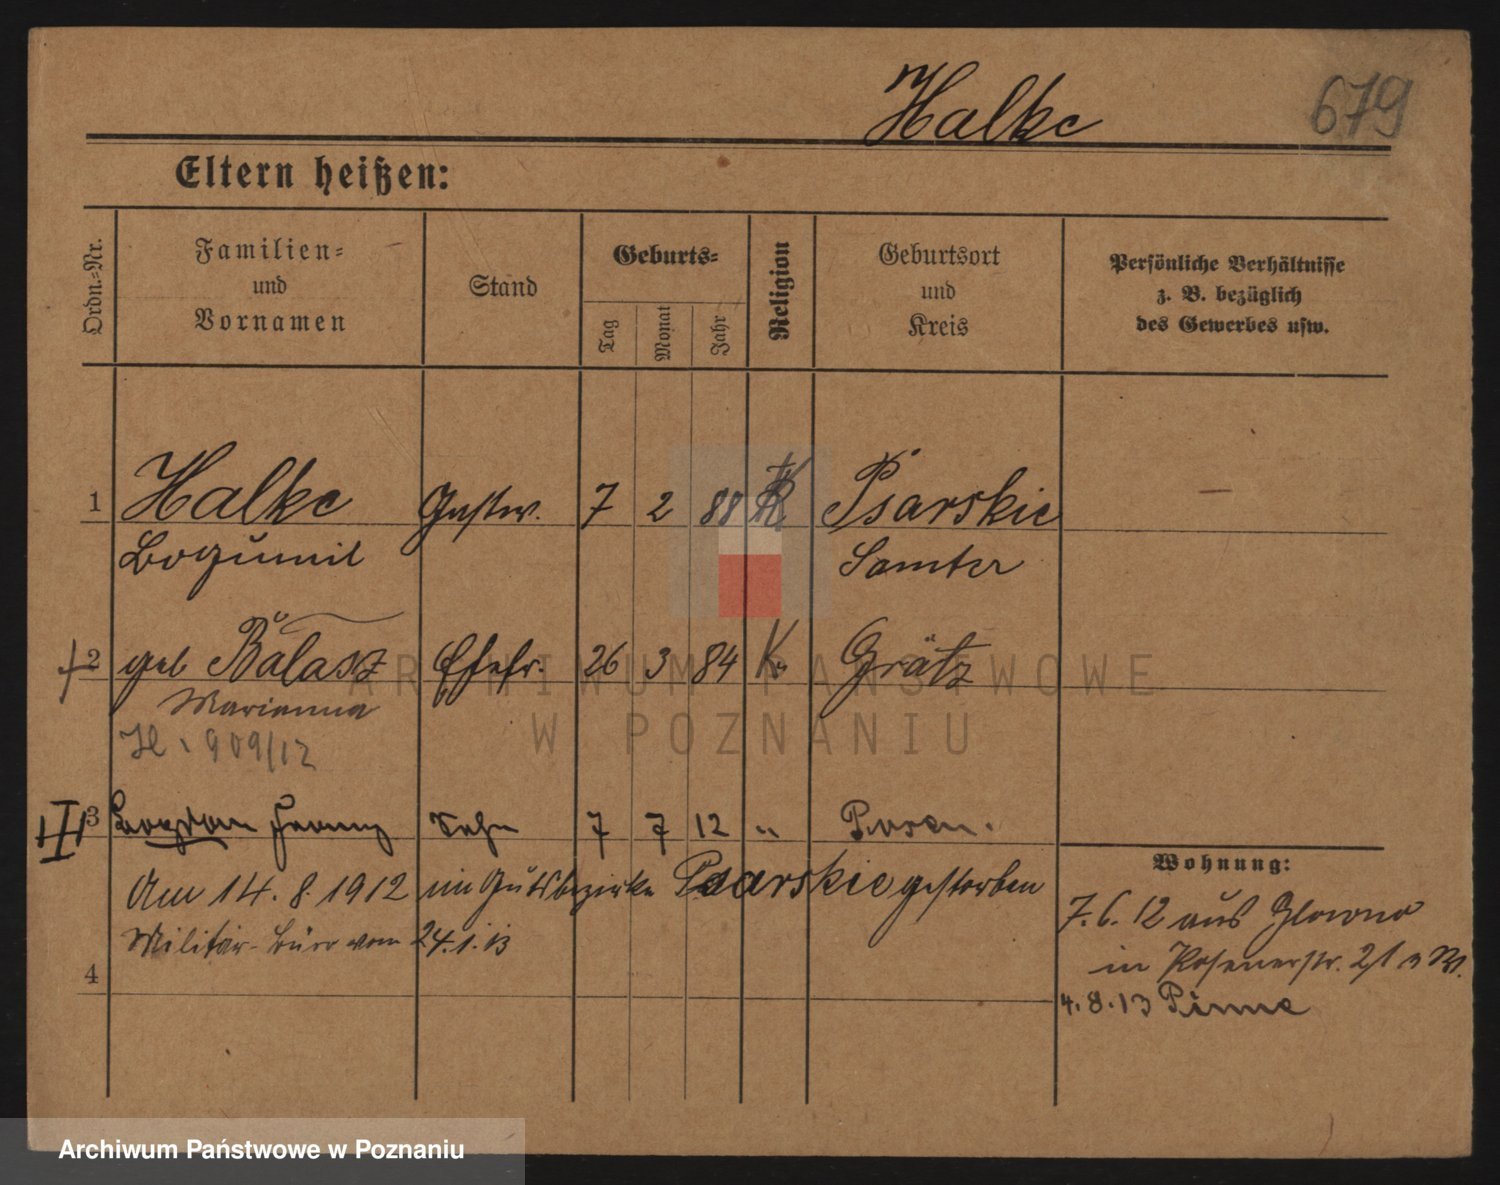 Halke
679
Eltern heißen:
Ordn.-Nr.
Familien-
und
Vornamen
Stand
Geburts-
Tag
Monat
Jahr
Religion
Geburtsort
und
Kreis
Persönliche Verhältnisse
z. B. bezüglich
des Gewerbes usw.
1 Halke Gastw. 7 2 88 K Psarskie —
Bogumil Samter
2 geb Balasz Ehefr. 26 3 84 K. Grätz
Marianna
909/12
III 3 Bogdan Sohn 7 7 12 " Posen.
Am 14. 8. 1912 im Gutsbezirke Psarskie gestorben
Militär-Büro vom 24.1.13
4
Wohnung:
7.6.12 aus Glowno
in Posenerstr. 21
4.8.13 Pinne
ARCHIWUM PAŃSTWOWE
W POZNANIU
Archiwum Państwowe w Poznaniu